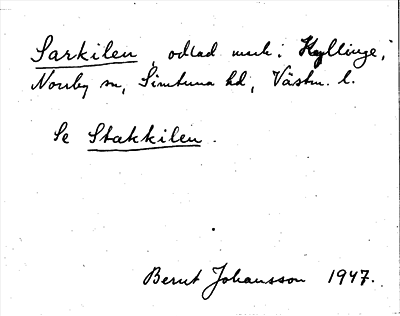 Sarkilen, odlad mark i Kyllinge,
Norrby sn, Simtuna hd, Västm. l.
Se Stakkilen.
Bernt Johansson 1947.